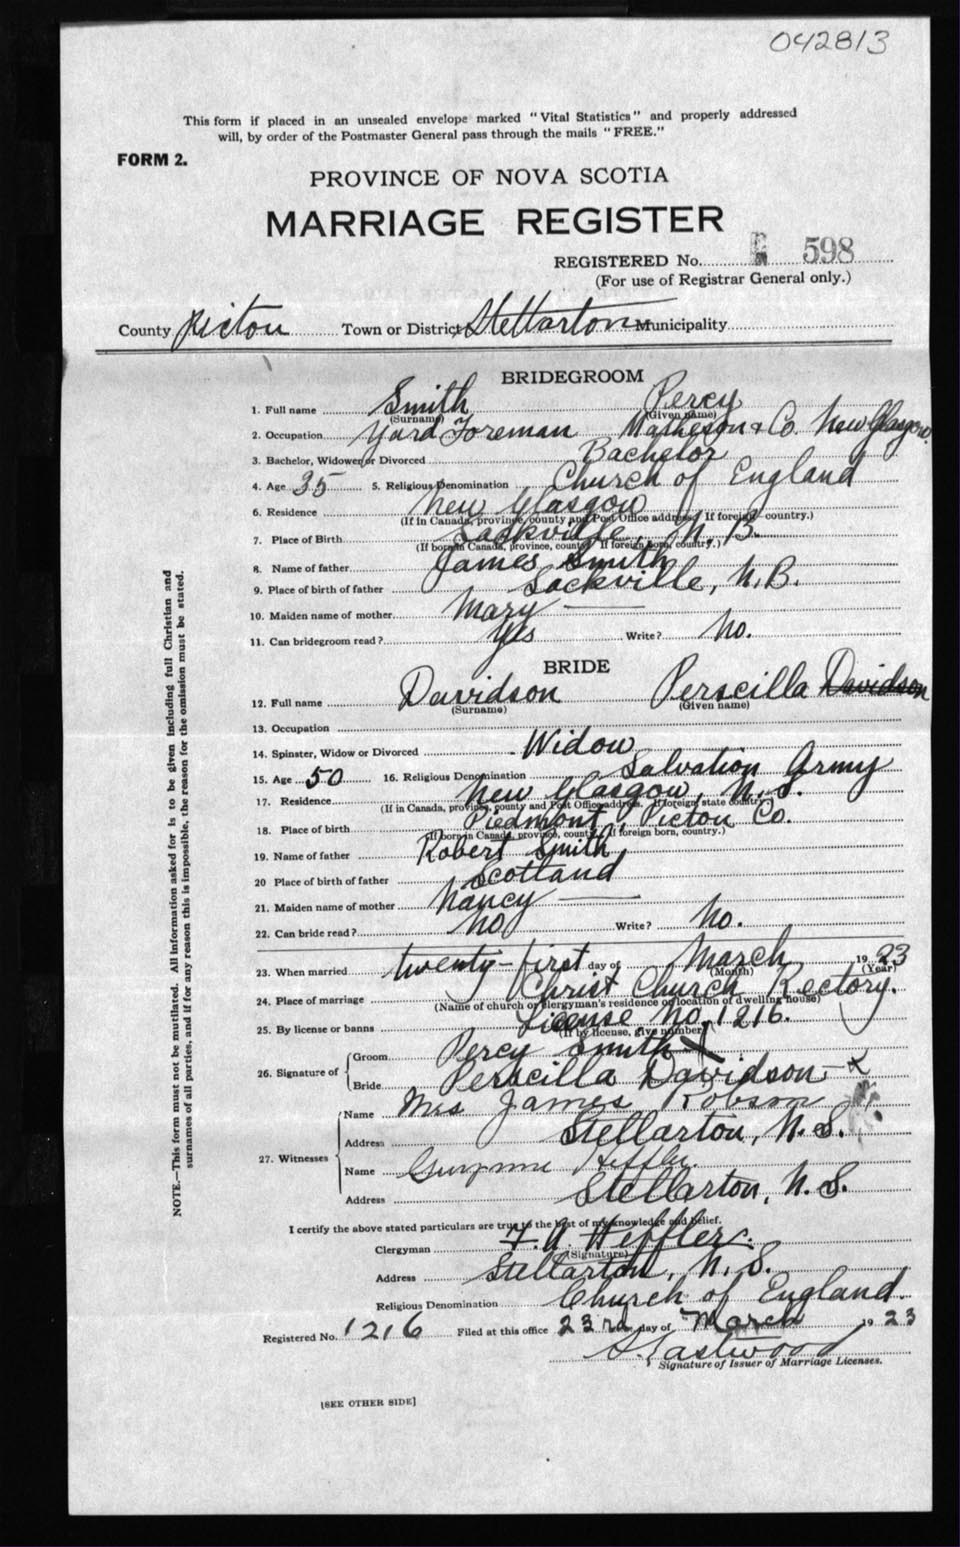 042813
This form if placed in an unsealed envelope marked "Vital Statistics" and properly addressed
will, by order of the Postmaster General pass through the mails "FREE."
FORM 2.
PROVINCE OF NOVA SCOTIA
MARRIAGE REGISTER
REGISTERED No. 598
(For use of Registrar General only.)
County Pictou Town or District Stellarton Municipality
BRIDEGROOM
1. Full name Smith Percy
(Surname) (Given name)
2. Occupation Yard Foreman Matheson & Co. New Glasgow
3. Bachelor, Widower or Divorced Bachelor
4. Age 35 5. Religious Denomination Church of England
6. Residence New Glasgow
(If in Canada, province, county and Post Office address. If foreign country.)
7. Place of Birth Sackville, N.B.
(If born in Canada, province, county. If foreign born, country.)
8. Name of father James Smith
9. Place of birth of father Sackville, N.B.
10. Maiden name of mother Mary —
11. Can bridegroom read? Yes Write? No.
BRIDE
12. Full name Davidson Perscilla Davidson
(Surname) (Given name)
13. Occupation
14. Spinster, Widow or Divorced Widow
15. Age 50 16. Religious Denomination Salvation Army
17. Residence New Glasgow, N.S.
(If in Canada, province, county and Post Office address. If foreign, state country.)
18. Place of birth Piedmont, Pictou Co.
(If born in Canada, province, county. If foreign born, country.)
19. Name of father Robert Smith
20 Place of birth of father Scotland
21. Maiden name of mother Nancy —
22. Can bride read? No Write? No.
23. When married twenty-first day of March 1923
(Month) (Year)
24. Place of marriage Christ Church Rectory.
(Name of church or clergyman's residence or location of dwelling house)
25. By license or banns License No. 1216.
(If by license, give number)
26. Signature of Groom Percy Smith X
Bride Perscilla Davidson - X
27. Witnesses Name Mrs James Robson
Address Stellarton, N.S.
Name Heffler.
Address Stellarton, N.S.
I certify the above stated particulars are true to the best of my knowledge and belief.
Clergyman F. A. Heffler.
(Signature)
Address Stellarton, N.S.
Religious Denomination Church of England.
Registered No. 1216 Filed at this office 23rd day of March 1923
Eastwood
Signature of Issuer of Marriage Licenses.
[SEE OTHER SIDE]
NOTE.—This form must not be mutilated. All information asked for is to be given including full Christian and
surnames of all parties, and if for any reason this is impossible, the reason for the omission must be stated.